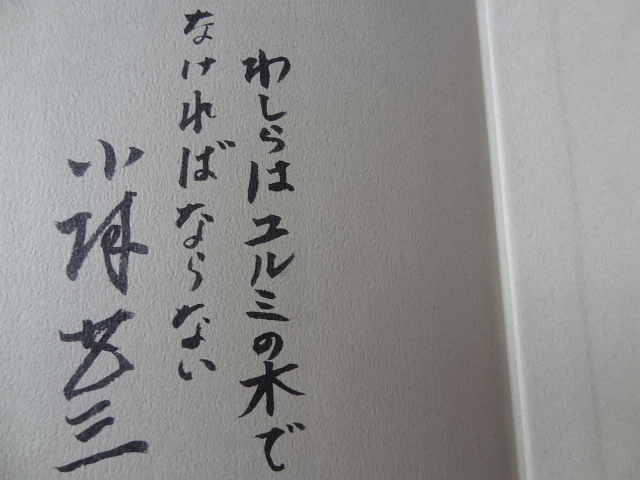 わしらはユルミの木で
なければならない
小林芳三